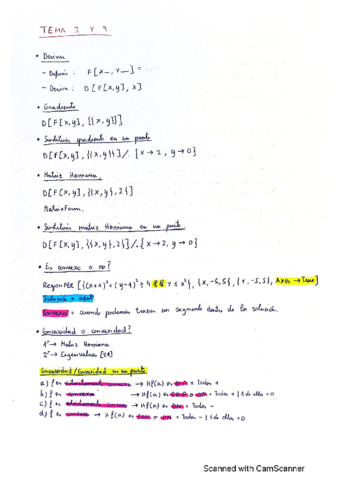 TEMA 3 Y 4
• Derivar
- Definir : F[x_, y_] =
- Derivar : D[F[x,y], x]
• Gradiente
D[F[x,y], {{x,y}}]
• Sustituir gradiente en un punto
D[F[x,y], {{x,y}}] /. {x→2, y→0}
• Matriz Hessiana
D[F[x,y], {{x,y},2}]
MatrixForm
• Sustituir matriz Hessiana en un punto
D[F[x,y], {{x,y},2}] /. {x→2, y→0}
• Es convexo o no?
RegionPlot [ ≤ x²}, {x,-5,5}, {y,-5,5}, Axes → True]
Convexo = cuando podemos trazar un segmento dentro de la solución.
• Concavidad o convexidad?
1º→ Matriz Hessiana
2º→ Eigenvalues
Concavidad/Convexidad en un punto
a) f es estrictamente → Hf(a) es → Todos +
b) f es → Hf(a) es → Todos + y 1 de ellos = 0
c) f es estrictamente → Hf(a) es → Todos -
d) f es → Hf(a) es → Todos - y 1 de ellos = 0
Scanned with CamScanner